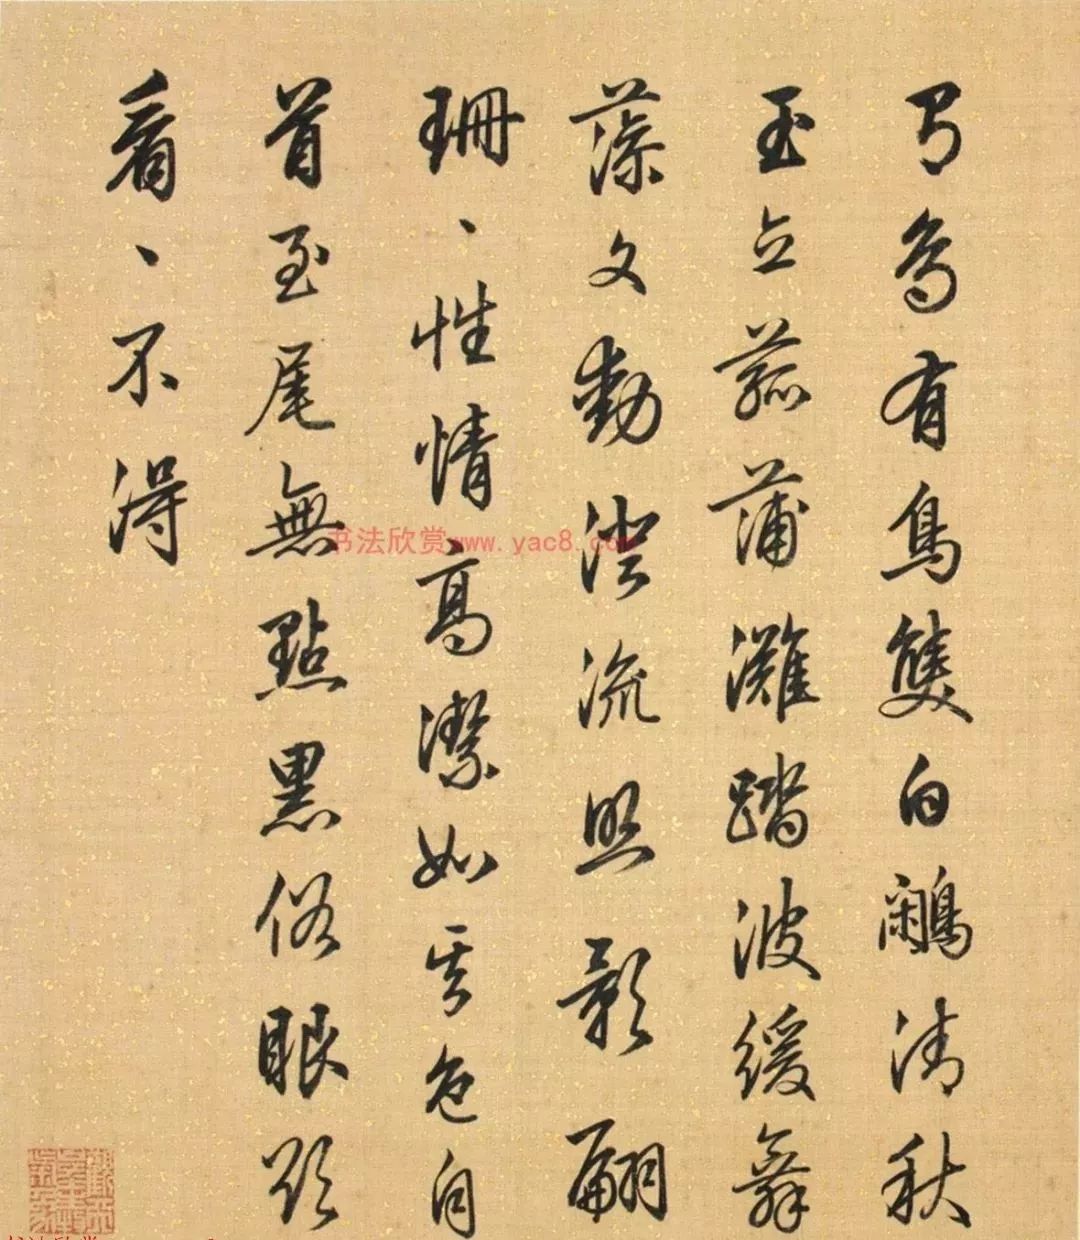 有鳥有鳥雙白鷳清秋
玉立菰蒲灘踏波緩舞
藻文動澄流照影翩
珊、性情高潔如其色自
首至尾無點黑俗眼欲
看、不得
书法欣赏www.yac8.com